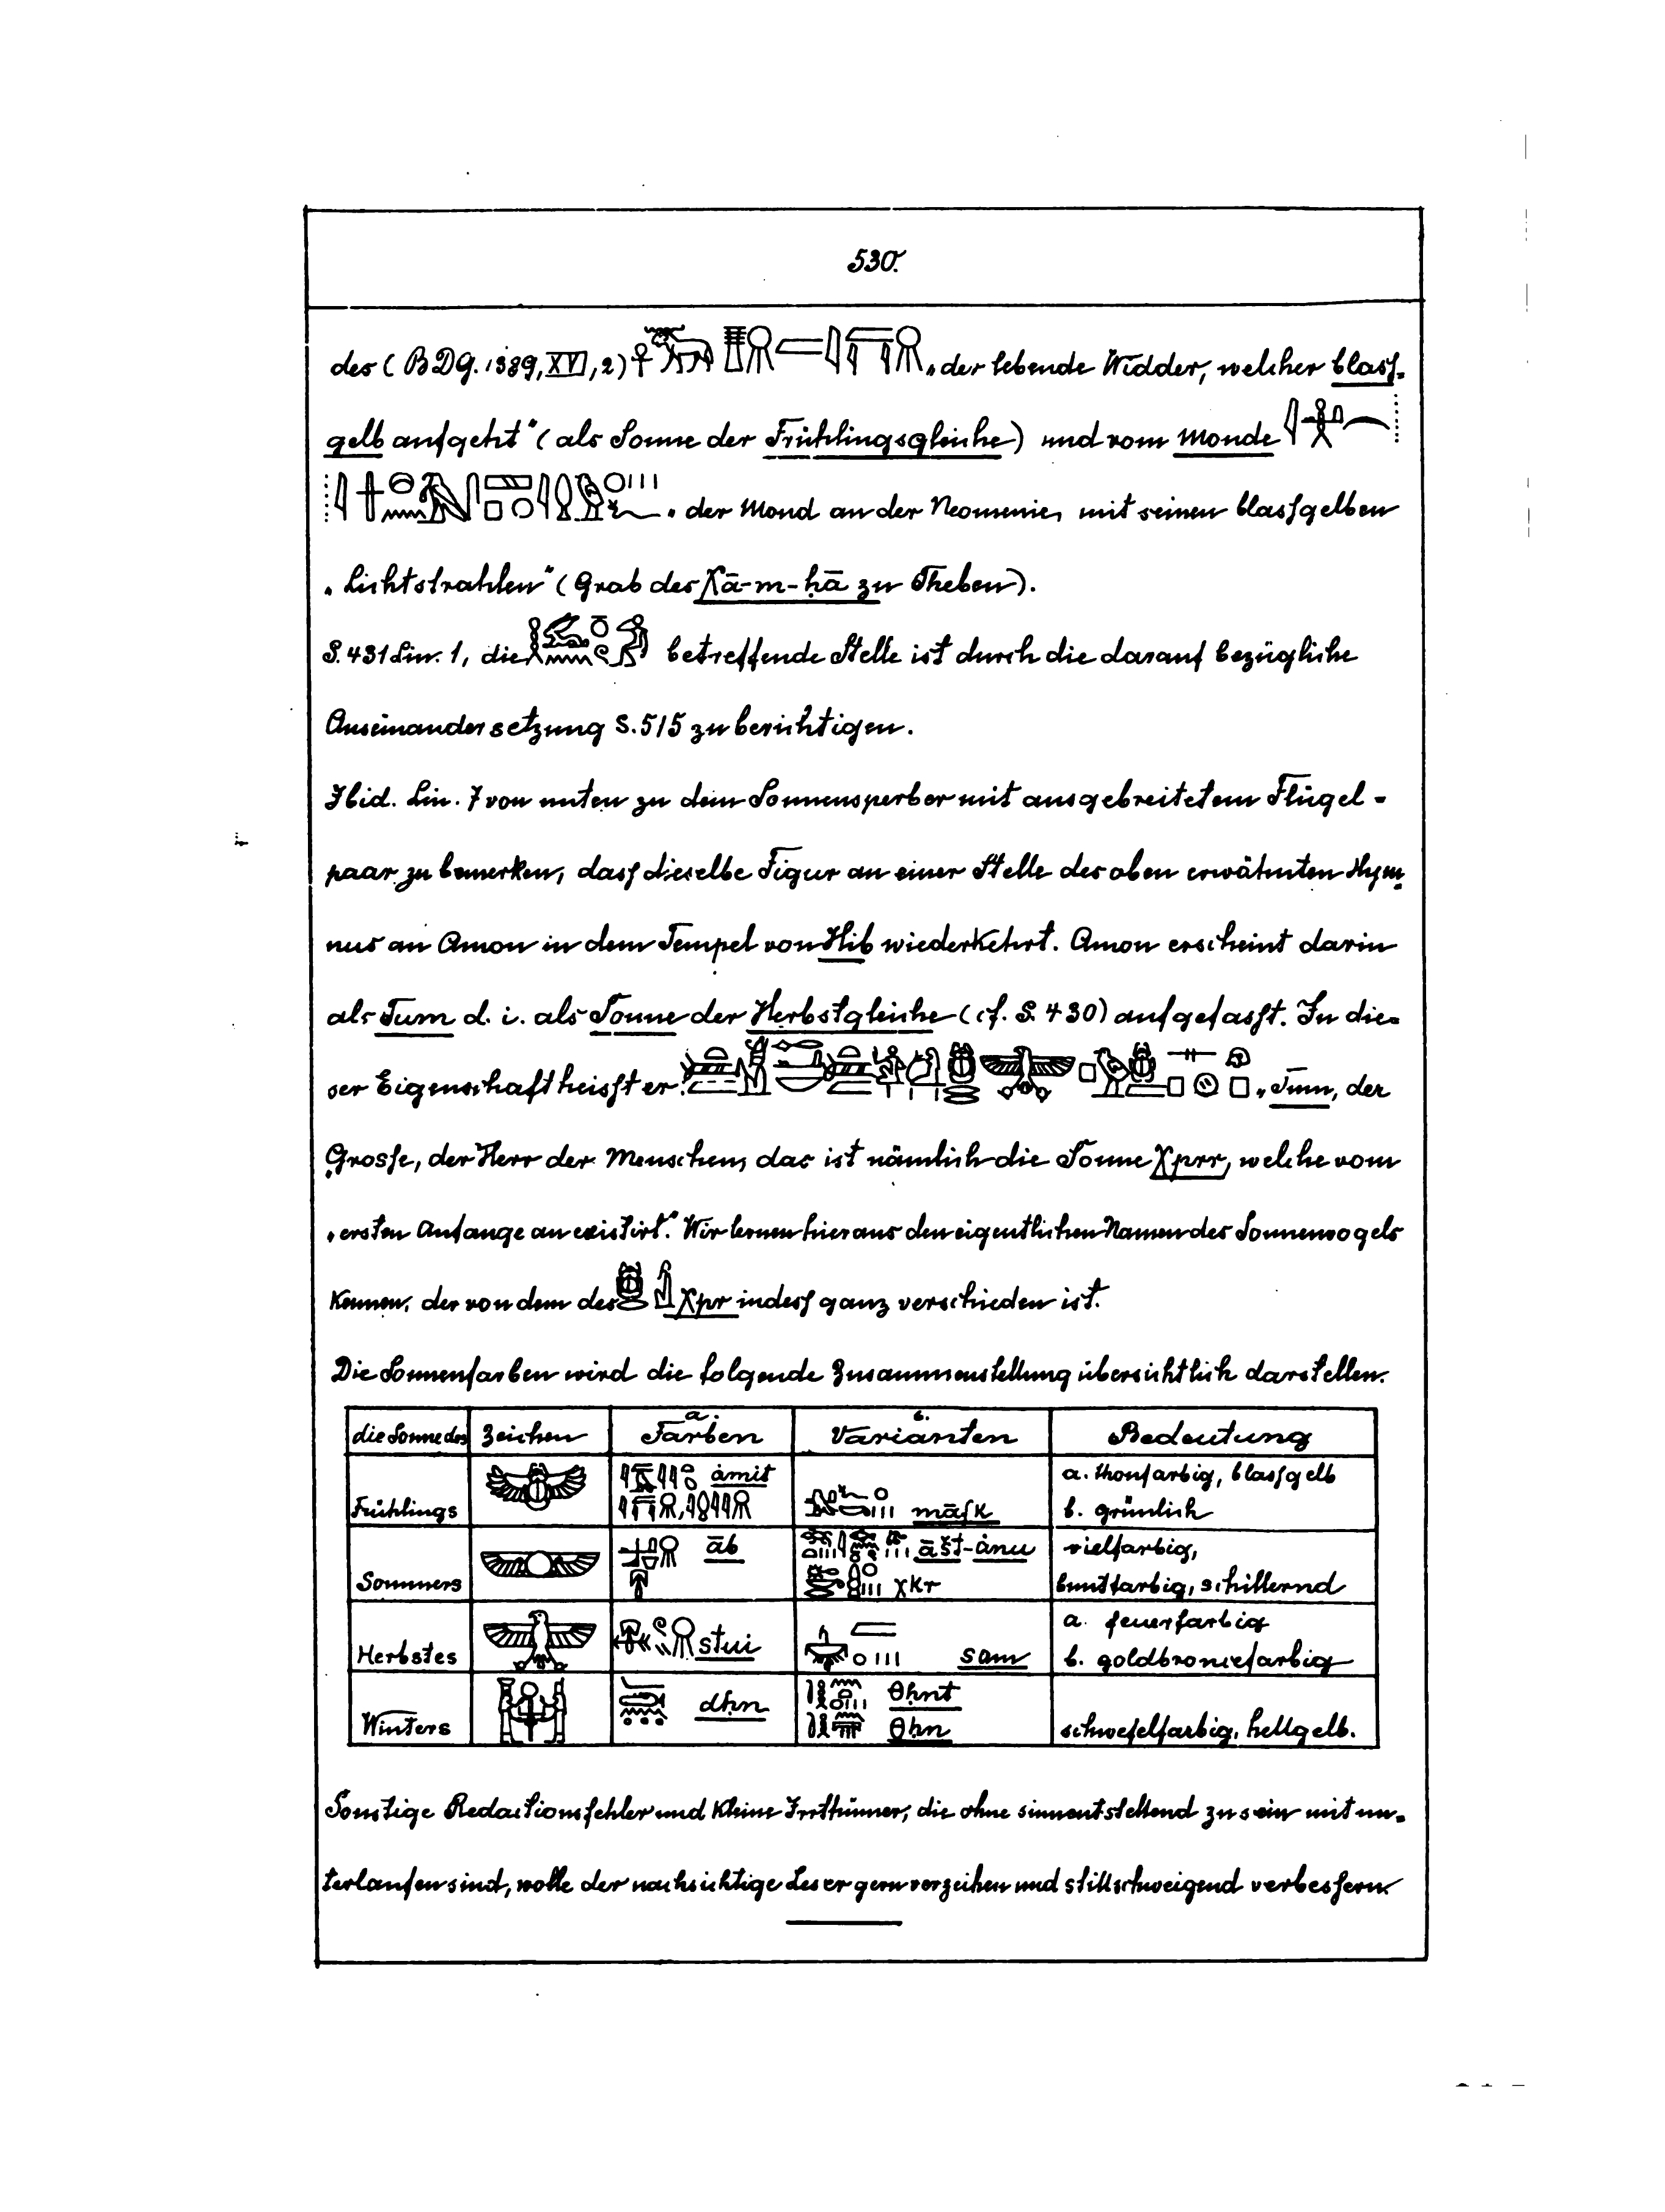 530.
des (BDG. 1389, XVI, 2) „der lebende Widder, welcher blass-
gelb aufgeht“ (als Sonne der Frühlingsgleiche) und vom Monde
„der Mond an der Neomenie, mit seinen blassgelben
„Lichtstrahlen“ (Grab des Χā-m-ḥā zu Theben).
S. 431 Lin. 1, die betreffende Stelle ist durch die darauf bezügliche
Auseinandersetzung S. 515 zu berichtigen.
Ibid. Lin. 7 von unten zu dem Sonnensperber mit ausgebreitetem Flügel-
paar zu bemerken, dass dieselbe Figur an einer Stelle des oben erwähnten Hym-
nus an Amon in dem Tempel von Hib wiederkehrt. Amon erscheint darin
als Tum d. i. als Sonne der Herbstgleiche (cf. S. 430) aufgefasst. In die-
ser Eigenschaft heisst er: „Tum, der
„Grosse, der Herr der Menschen, das ist nämlich die Sonne Χprr, welche vom
„ersten Anfange an existirt.“ Wir lernen hieraus den eigentlichen Namen des Sonnenvogels
kennen, der von dem des Χpr indess ganz verschieden ist.
Die Sonnenfarben wird die folgende Zusammenstellung übersichtlich darstellen.
die Sonne des Zeichen a. Farben b. Varianten Bedeutung
Frühlings ȧmit māfk a. thonfarbig, blassgelb
b. grünlich
Sommers āb āšt-ȧnu vielfarbig,
χkr buntfarbig, schillernd
Herbstes stui sam a. feuerfarbig
b. goldbroncefarbig
Winters dḥn θḥnt
θḥn schwefelfarbig, hellgelb.
Sonstige Redactionsfehler und kleine Irrthümer, die ohne sinnentstellend zu sein mit un-
terlaufen sind, wolle der nachsichtige Leser gern verzeihen und stillschweigend verbessern.